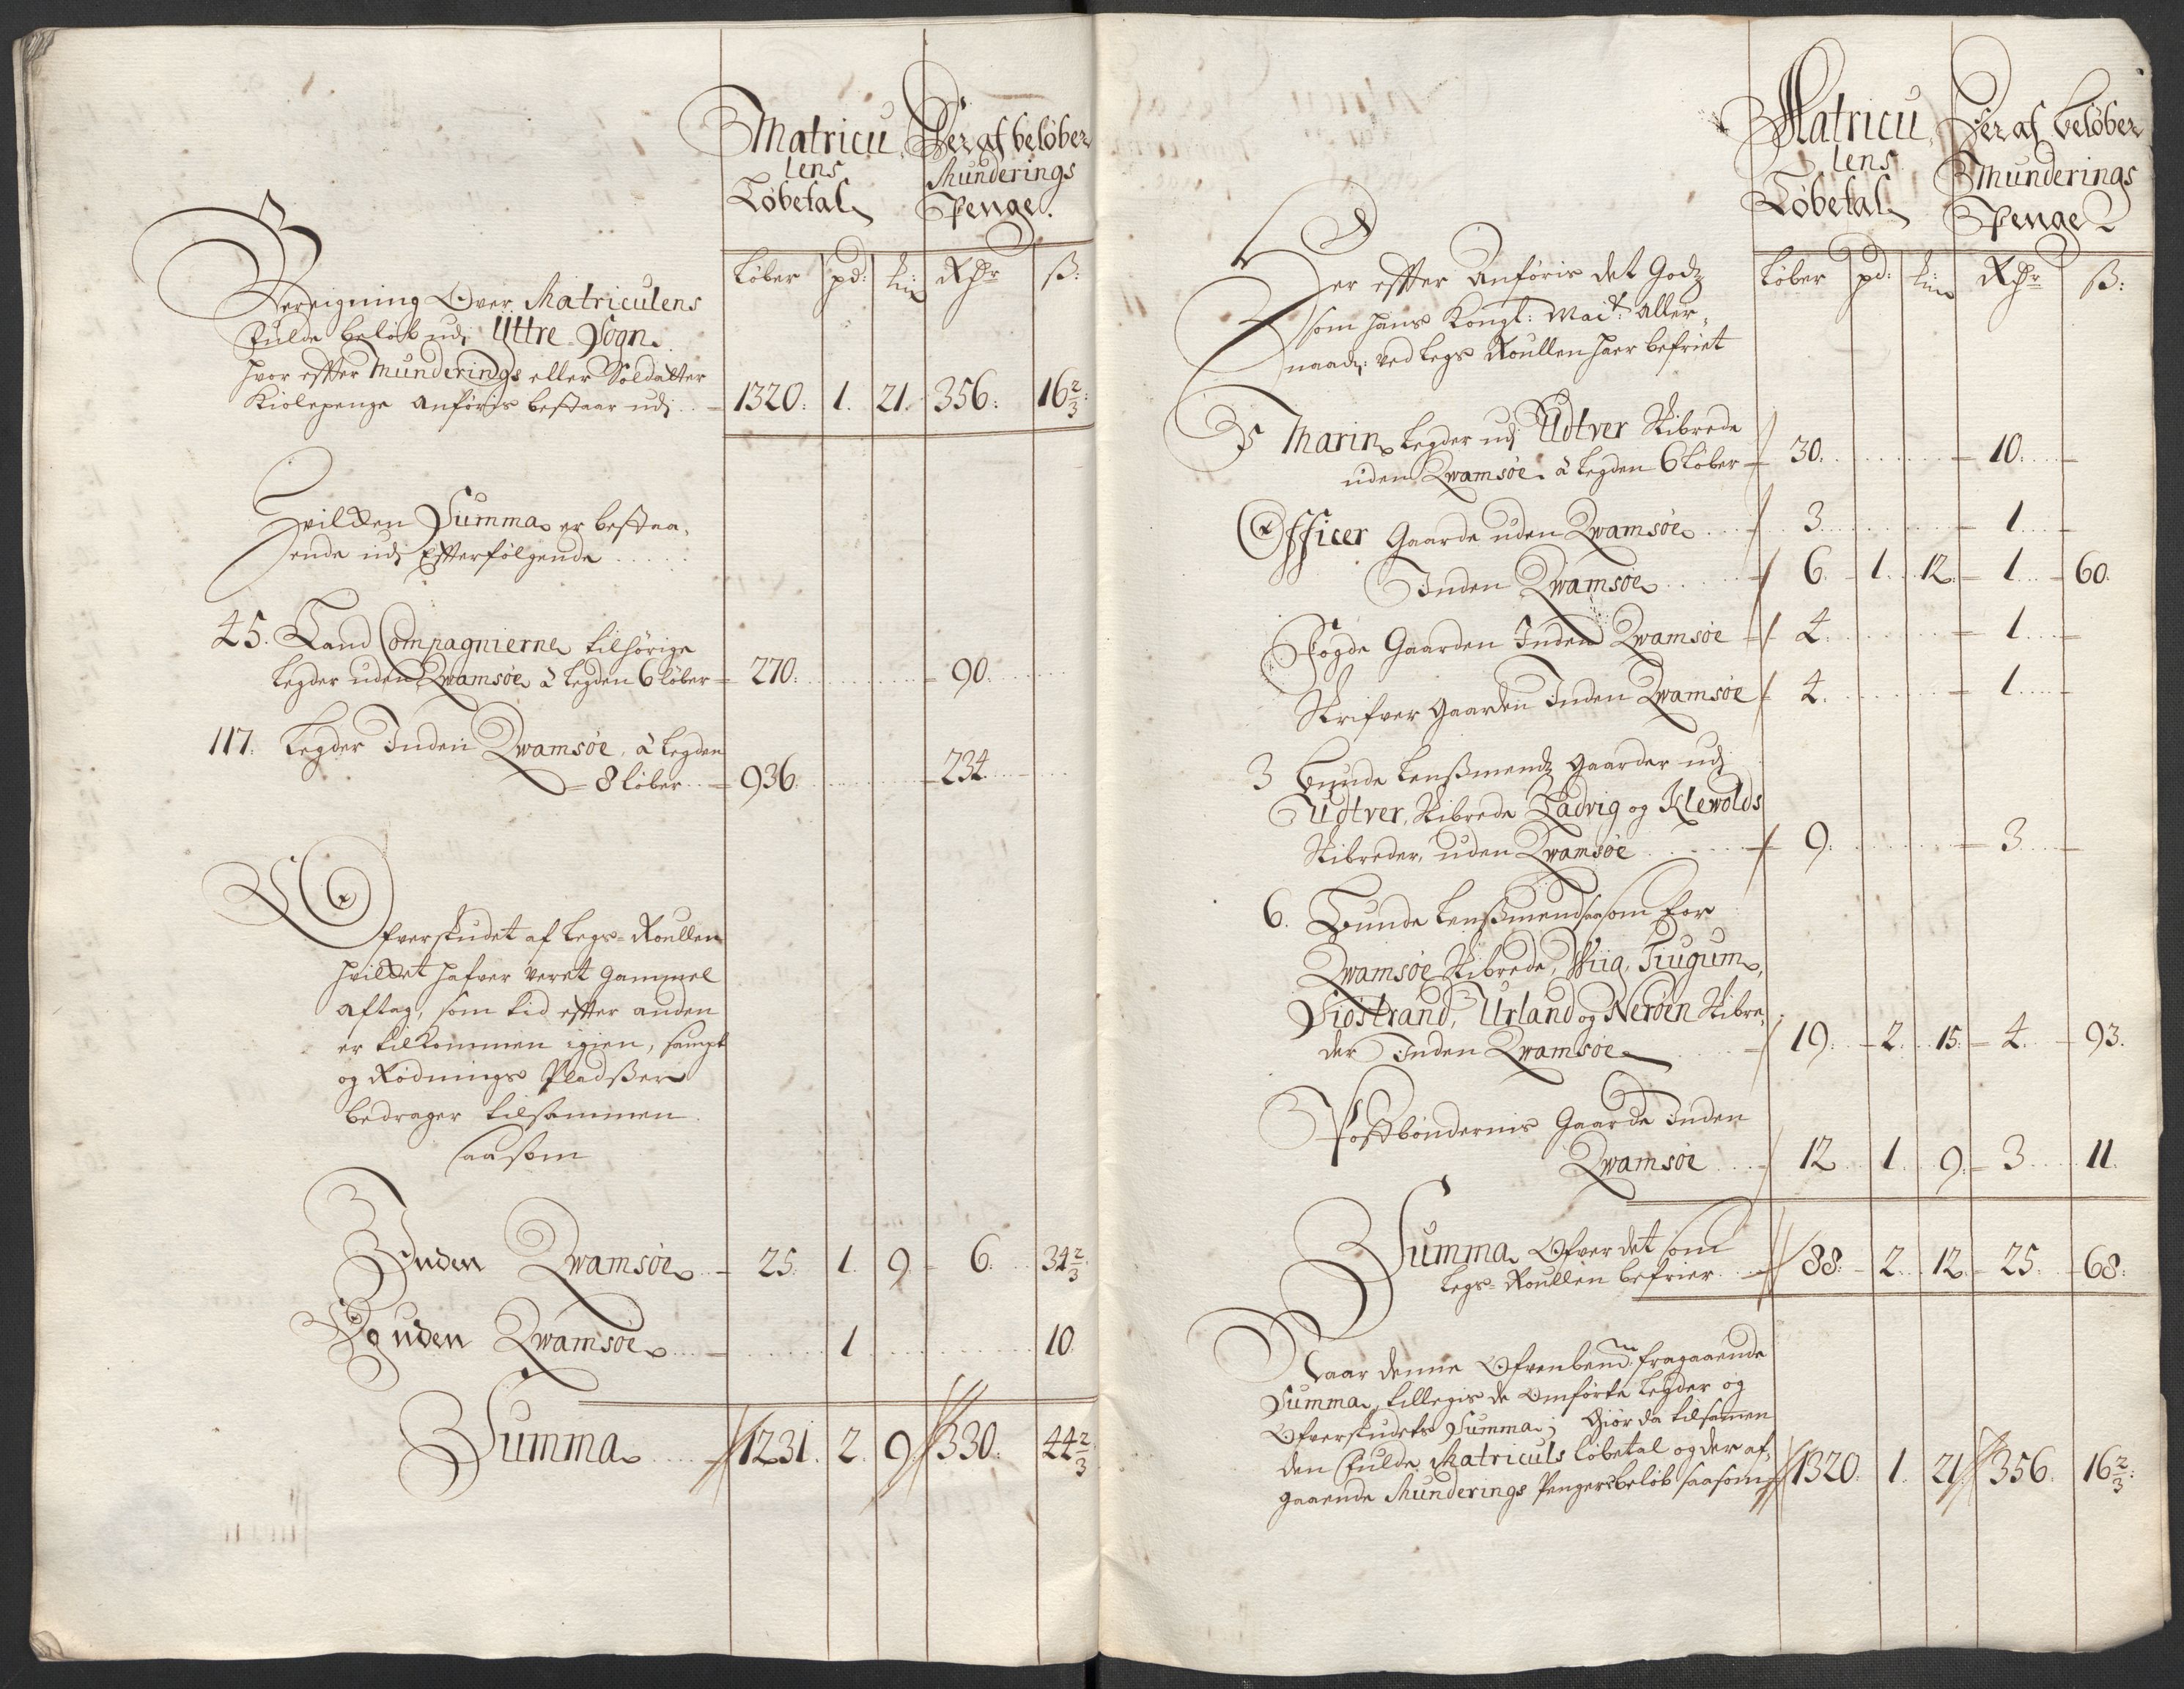 Matricu
lens
Løbetal
Der af beløber
Munderings
Penge.
Løber pd: Lin Rdr ß:
Bereigning Over Matriculens
Fulde beløb udj Uttre Sogn
hvor effter Munderings eller Soldatter
Kiolepenge anføris bestaar udj 1320: 1. 21. 356: 16 2/3:
Hvilken Summa er bestaa-
ende udj Effterfølgende
45. Land Compagnierne tilhørige
Legder uden Qwamsøe à Legden 6 løber 270: 90.
117. Legder Inden Qwamsøe, à Legden
8 løber 936. 234.
Ofverskudet af Legs-Roullen
hvilket hafver veret gammel
aftag, som tid effter anden
er tilkommen igien, sampt
og Rødnings Pladßer
bedrager tilsammen
saasom
Inden Qwamsøe 25. 1. 9. 6. 34 2/3.
Og uden Qwamsøe 1 10.
Summa 1231. 2. 9. 330. 44 2/3.
Matricu
lens
Løbetal
Der af beløber
Munderings
Penge
Løber pd: Lin Rdr ß:
Her effter Anføris det Godz
som hans Kongl: May: Aller-
naad: ved Legs Roullen haer befriet
5 Marin Legder udj Udtver Skibrede
uden Qwamsøe à Legden 6 Løber 30. 10.
Officer Gaarde uden Qwamsøe 3 1.
Inden Qwamsøe 6. 1. 12. 1. 60.
Fogde Gaarden Inden Qwamsøe 4. 1.
Skrifver Gaarden Inden Qwamsøe 4. 1.
3 Bunde Lenßmendz Gaarder udj
Udtver, Skibrede Ladvig og Klewolds
Skibreder, uden Qwamsøe 9. 3.
6. Bunde Lenßmend saasom for
Qwamsøe Skibrede, Wiig, Tiugum,
Siøstrand, Urland og Nerøen Skibre-
der Inden Qwamsøe 19. 2. 15. 4. 93.
Postbøndernis Gaarde Inden
Qwamsøe 12. 1. 9. 3. 11.
Summa Ofver det som
Legs-Roullen befrier 88. 2. 12. 25. 68.
Naar denne Ofvenbem: fragaaende
Summa, tillegis de Omførte Legder og
Ofverskudets Summa; Giør da tilsammen
den Fulde Matriculs løbetal og der af-
gaaende Munderings Pengers beløb saasom 1320. 1. 21. 356. 16 2/3: